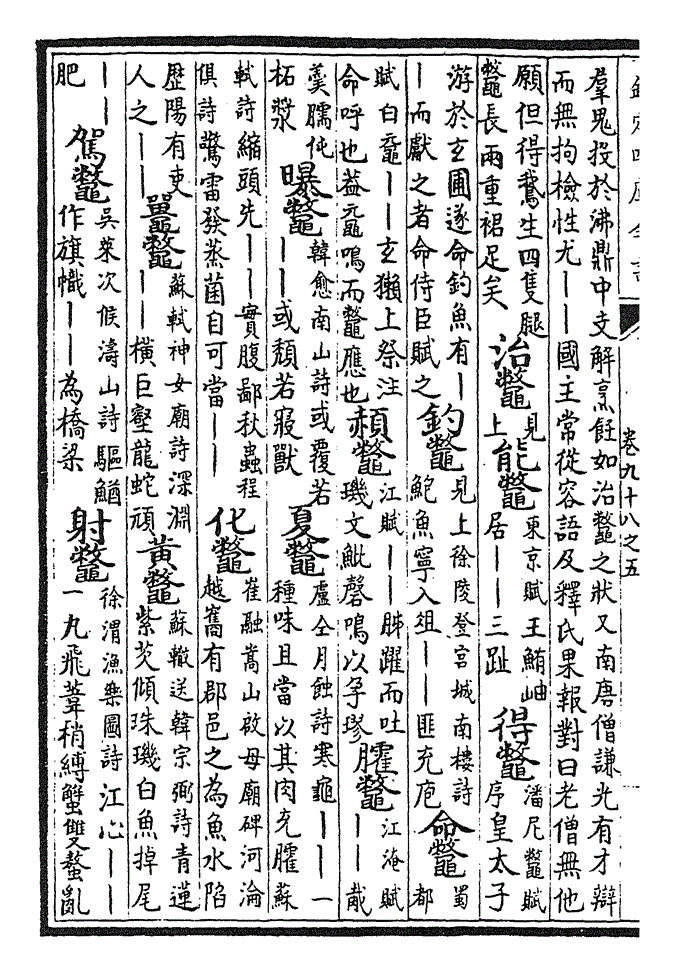 欽定四庫全書
卷九十八之五
羣鬼投於沸鼎中支解烹飪如治鼈之狀又南唐僧謙光有才辯
而無拘檢性尤——國主常從容語及釋氏果報對曰老僧無他
願但得鵞生四隻腿
鼈長兩重裙足矣
治鼈
見
上
能鼈
東京賦王鮪岫
居——三趾
得鼈
潘尼鼈賦
序皇太子
游於玄圃遂命釣魚有—
—而獻之者命侍臣賦之
釣鼈
見上徐陵登宫城南樓詩
鮑魚寧入俎——匪充庖
命鼈
蜀
都
賦白黿——玄獺上祭注
命呼也葢黿鳴而鼈應也
頳鼈
江賦——胏躍而吐
璣文魮磬鳴以孕璆
臛鼈
江淹賦
——胾
羹臑伅
柘漿
曝鼈
韓愈南山詩或覆若
——或頽若寢獸
夏鼈
盧仝月蝕詩寒龜——一
種味且當以其肉充臛蘇
軾詩縮頭先——實腹鄙秋蟲程
俱詩驚雷發蒸菌自可當——
化鼈
崔融嵩山啟母廟碑河淪
越嶲有郡邑之為魚水陷
歴陽有吏
人之——
鼉鼈
蘇軾神女廟詩深淵
——橫巨壑龍蛇頑
黄鼈
蘇轍送韓宗弼詩青蓮
紫芡傾珠璣白魚掉尾
——
肥
駕鼈
吳萊次候濤山詩驅鰌
作旗幟——為橋梁
射鼈
徐渭漁樂圖詩江心——
一丸飛葦稍縛蟹雙螯亂